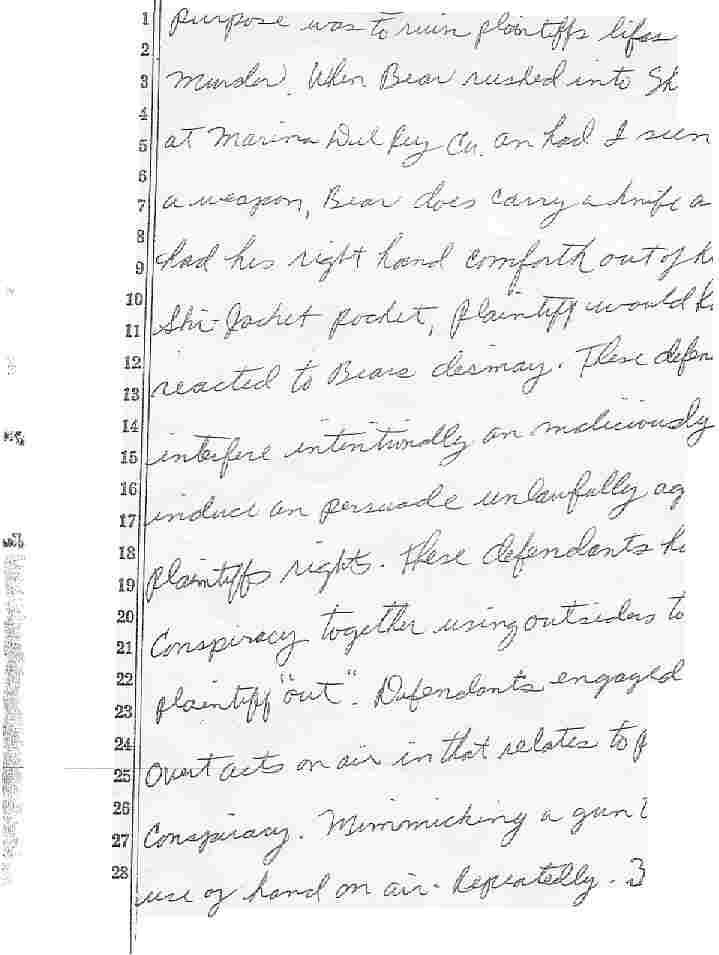 1 purpose was to ruin plaintiffs lifes
2
3 Murder. When Bear rushed into Sk
4
5 at Marina Del Rey Ca. an had I seen
6
7 a weapon, Bear does carry a knife a
8
9 had his right hand comforth out of h
10
11 Ski-Jacket pocket, plaintiff would h
12
13 reacted to Bears desmay. These defen
14
15 interfere intentionally an maliciously
16
17 induce an persuade unlawfully ag
18
19 plaintiffs rights. These defendants h
20
21 Conspiracy together using outsiders to
22
23 plaintiff "out". Defendants engaged
24
25 Overt acts on air in that relates to p
26
27 Conspiracy. Mimmicking a gun
28
use of hand on air. Repeatedly. 3